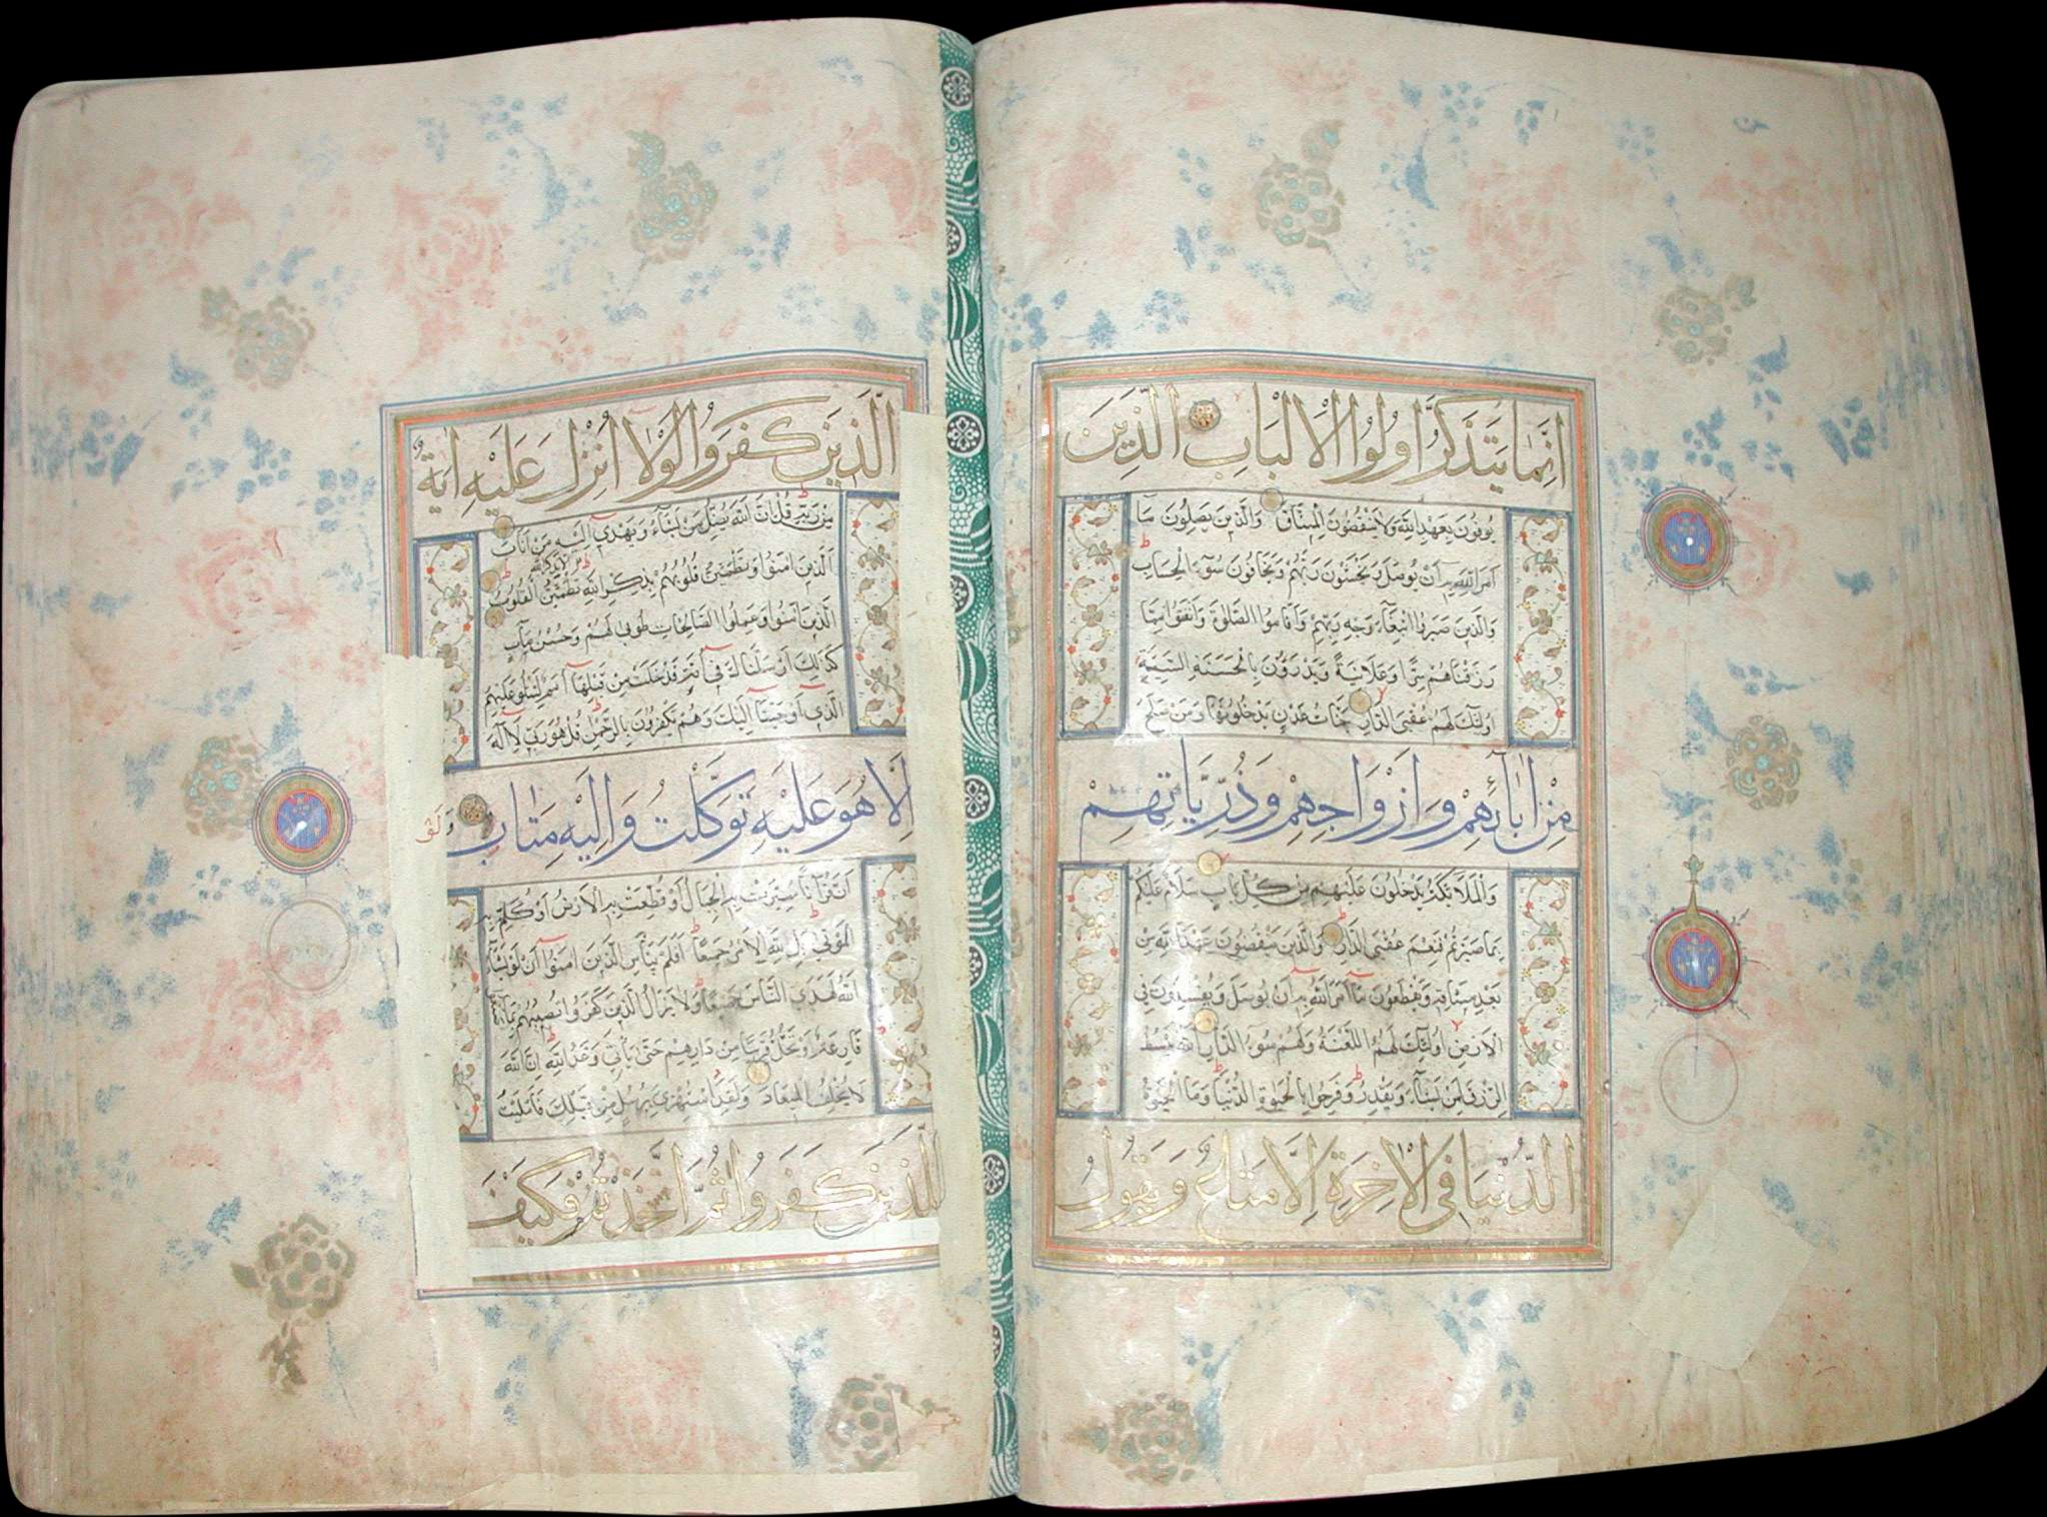 اِنَّمَا يَتَذَكَّرُ اُولُوا الْاَلْبَابِ الَّذِينَ
يُوفُونَ بِعَهْدِ اللّٰهِ وَلَا يَنْقُضُونَ الْمِيثَاقَ وَالَّذِينَ يَصِلُونَ مَا
اَمَرَ اللّٰهُ بِهِ اَنْ يُوصَلَ وَيَخْشَوْنَ رَبَّهُمْ وَيَخَافُونَ سُوءَ الْحِسَابِ
وَالَّذِينَ صَبَرُوا ابْتِغَاءَ وَجْهِ رَبِّهِمْ وَاَقَامُوا الصَّلٰوةَ وَاَنْفَقُوا مِمَّا
رَزَقْنَاهُمْ سِرًّا وَعَلَانِيَةً وَيَدْرَؤُنَ بِالْحَسَنَةِ السَّيِّئَةَ
اُولٰئِكَ لَهُمْ عُقْبَى الدَّارِ جَنَّاتُ عَدْنٍ يَدْخُلُونَهَا وَمَنْ صَلَحَ
مِنْ اٰبَائِهِمْ وَاَزْوَاجِهِمْ وَذُرِّيَّاتِهِمْ
وَالْمَلَائِكَةُ يَدْخُلُونَ عَلَيْهِمْ مِنْ كُلِّ بَابٍ سَلَامٌ عَلَيْكُمْ
بِمَا صَبَرْتُمْ فَنِعْمَ عُقْبَى الدَّارِ وَالَّذِينَ يَنْقُضُونَ عَهْدَ اللّٰهِ مِنْ
بَعْدِ مِيثَاقِهِ وَيَقْطَعُونَ مَا اَمَرَ اللّٰهُ بِهِ اَنْ يُوصَلَ وَيُفْسِدُونَ فِي
الْاَرْضِ اُولٰئِكَ لَهُمُ اللَّعْنَةُ وَلَهُمْ سُوءُ الدَّارِ اللّٰهُ يَبْسُطُ
الرِّزْقَ لِمَنْ يَشَاءُ وَيَقْدِرُ وَفَرِحُوا بِالْحَيٰوةِ الدُّنْيَا وَمَا الْحَيٰوةُ
الدُّنْيَا فِي الْاٰخِرَةِ اِلَّا مَتَاعٌ وَيَقُولُ
الَّذِينَ كَفَرُوا لَوْلَا اُنْزِلَ عَلَيْهِ اٰيَةٌ
مِنْ رَبِّهِ قُلْ اِنَّ اللّٰهَ يُضِلُّ مَنْ يَشَاءُ وَيَهْدِي اِلَيْهِ مَنْ اَنَابَ
اَلَّذِينَ اٰمَنُوا وَتَطْمَئِنُّ قُلُوبُهُمْ بِذِكْرِ اللّٰهِ اَلَا بِذِكْرِ اللّٰهِ تَطْمَئِنُّ الْقُلُوبُ
الَّذِينَ اٰمَنُوا وَعَمِلُوا الصَّالِحَاتِ طُوبٰى لَهُمْ وَحُسْنُ مَاٰبٍ
كَذٰلِكَ اَرْسَلْنَاكَ فِي اُمَّةٍ قَدْ خَلَتْ مِنْ قَبْلِهَا اُمَمٌ لِتَتْلُوَ عَلَيْهِمُ
الَّذِي اَوْحَيْنَا اِلَيْكَ وَهُمْ يَكْفُرُونَ بِالرَّحْمٰنِ قُلْ هُوَ رَبِّي لَا اِلٰهَ
اِلَّا هُوَ عَلَيْهِ تَوَكَّلْتُ وَاِلَيْهِ مَتَابِ وَلَوْ
اَنَّ قُرْاٰنًا سُيِّرَتْ بِهِ الْجِبَالُ اَوْ قُطِّعَتْ بِهِ الْاَرْضُ اَوْ كُلِّمَ بِهِ
الْمَوْتٰى بَلْ لِلّٰهِ الْاَمْرُ جَمِيعًا اَفَلَمْ يَيْاَسِ الَّذِينَ اٰمَنُوا اَنْ لَوْ يَشَاءُ
اللّٰهُ لَهَدَى النَّاسَ جَمِيعًا وَلَا يَزَالُ الَّذِينَ كَفَرُوا تُصِيبُهُمْ بِمَا صَنَعُوا
قَارِعَةٌ اَوْ تَحُلُّ قَرِيبًا مِنْ دَارِهِمْ حَتّٰى يَأْتِيَ وَعْدُ اللّٰهِ اِنَّ اللّٰهَ
لَا يُخْلِفُ الْمِيعَادَ وَلَقَدِ اسْتُهْزِئَ بِرُسُلٍ مِنْ قَبْلِكَ فَاَمْلَيْتُ
لِلَّذِينَ كَفَرُوا ثُمَّ اَخَذْتُهُمْ فَكَيْفَ